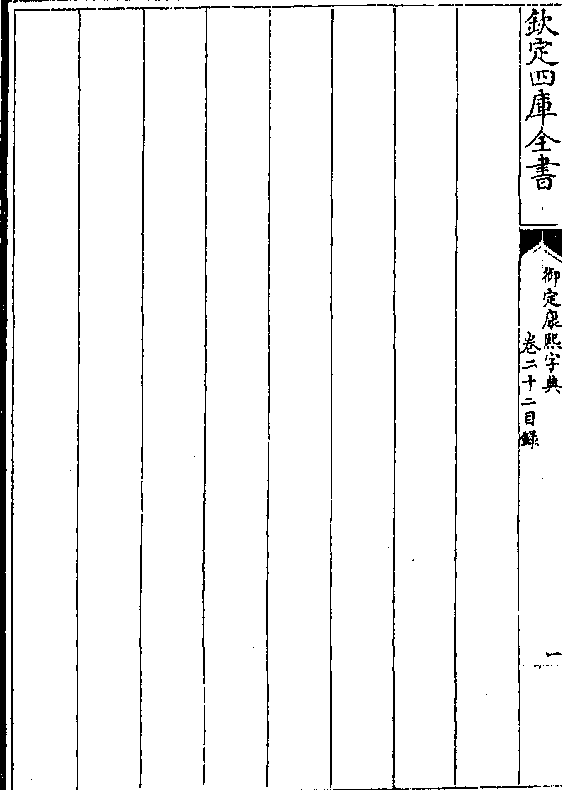 欽定四庫全書
御定康熙字典
卷二十二目錄
一